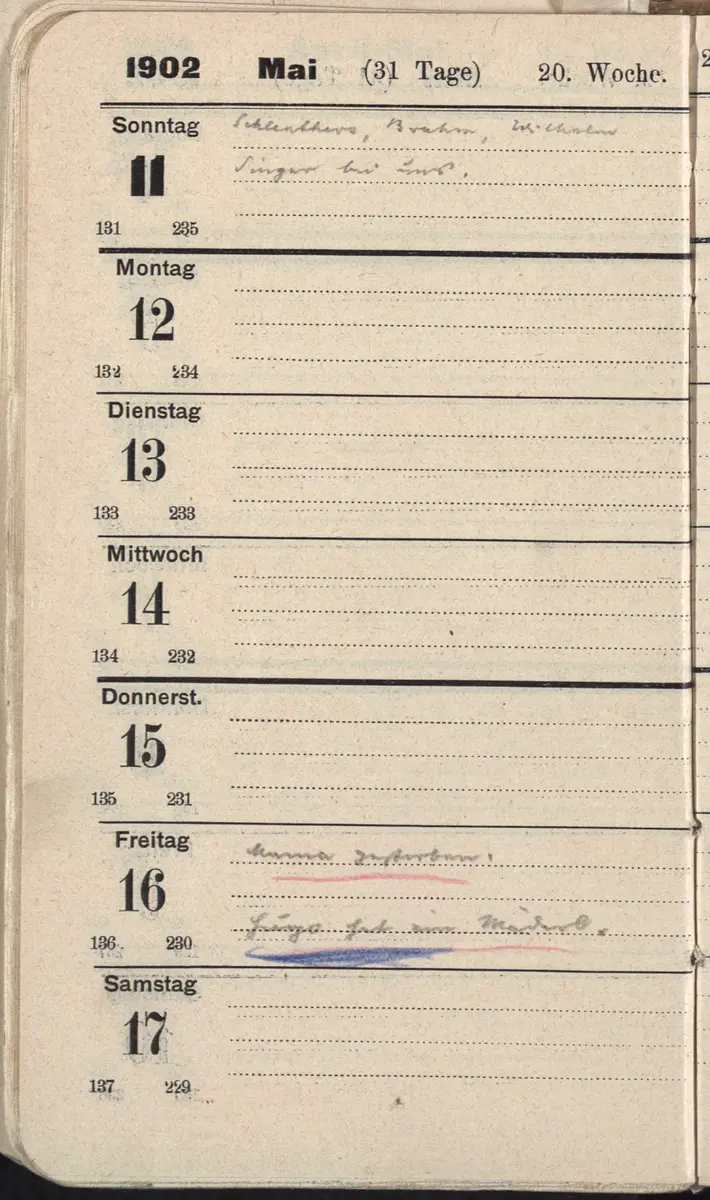 1902 Mai (31 Tage) 20. Woche.
Sonntag
11
131 235
Schlenthers, Brahm, Wilhelm
Singer bei uns.
Montag
12
132 234
Dienstag
13
133 233
Mittwoch
14
134 232
Donnerst.
15
135 231
Freitag
16
136 230
Mama gestorben.
Hugo hat ein Mäderl.
Samstag
17
137 229